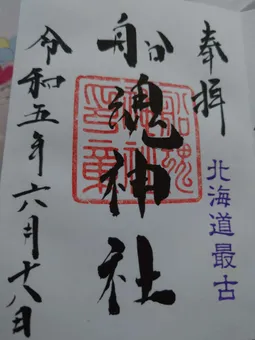 奉拝
北海道最古
船魂神社
令和五年六月十八日